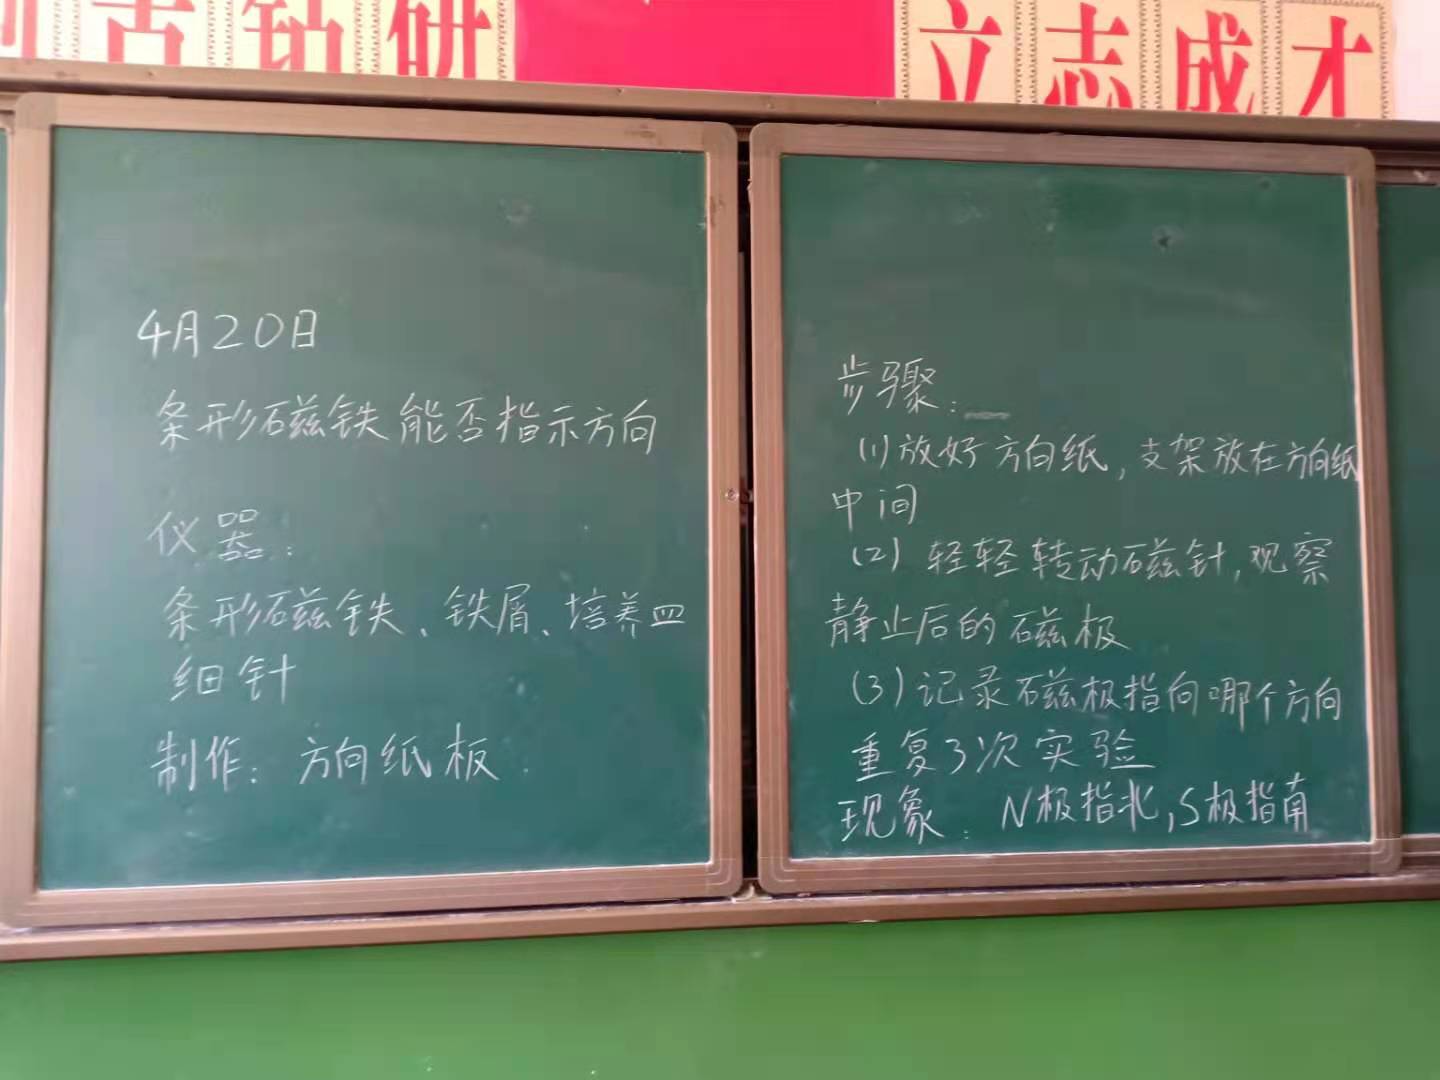 苦钻研
立志成才
4月20日
条形磁铁能否指示方向
仪器:
条形磁铁、铁屑、培养皿
细针
制作: 方向纸板
步骤:
(1)放好方向纸,支架放在方向纸
中间
(2)轻轻转动磁针,观察
静止后的磁极
(3)记录磁极指向哪个方向
重复3次实验
现象: N极指北,S极指南